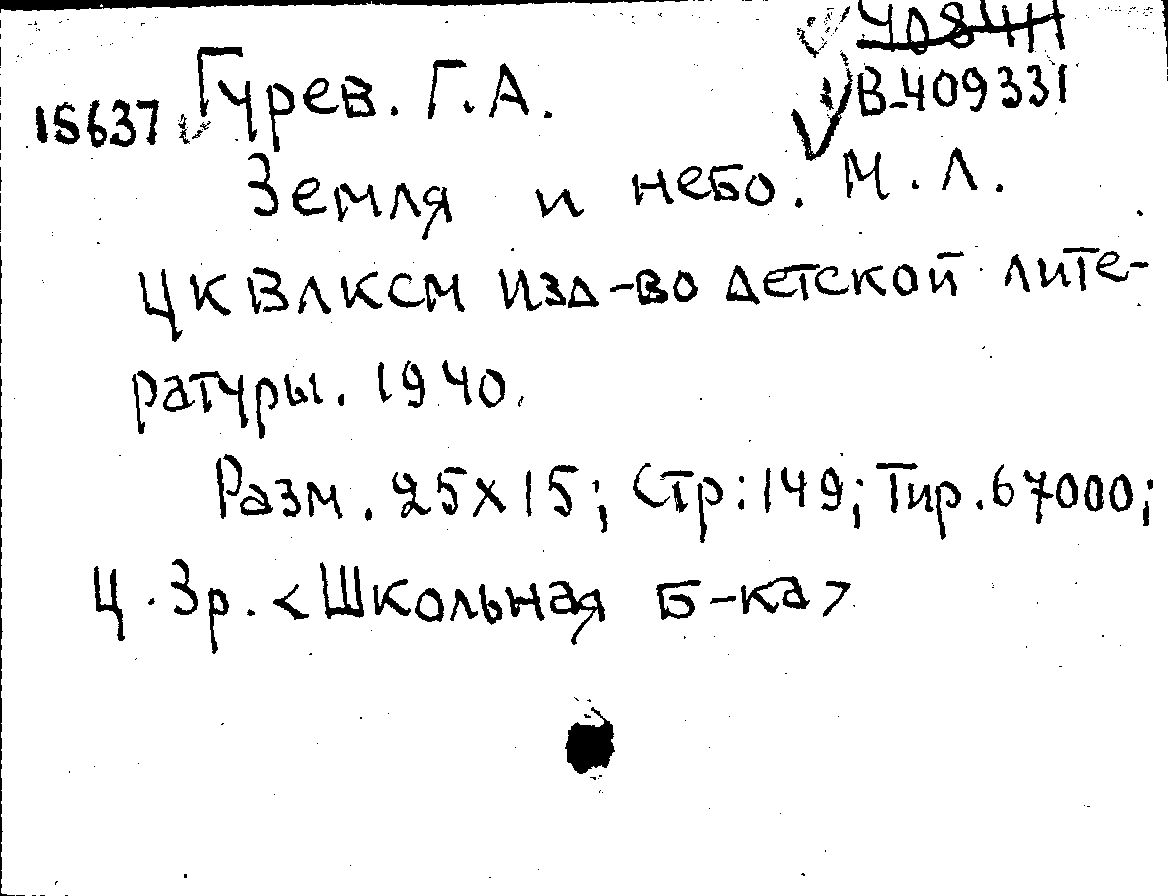 408411
В-409331
15637 Гурев. Г.А.
Земля и небо. М. Л.
ЦК ВЛКСМ Изд-во детской лите-
ратуры. 1940.
Разм. 25х15; Стр: 149; Тир. 67000;
Ц. 3р. <Школьная Б-ка>